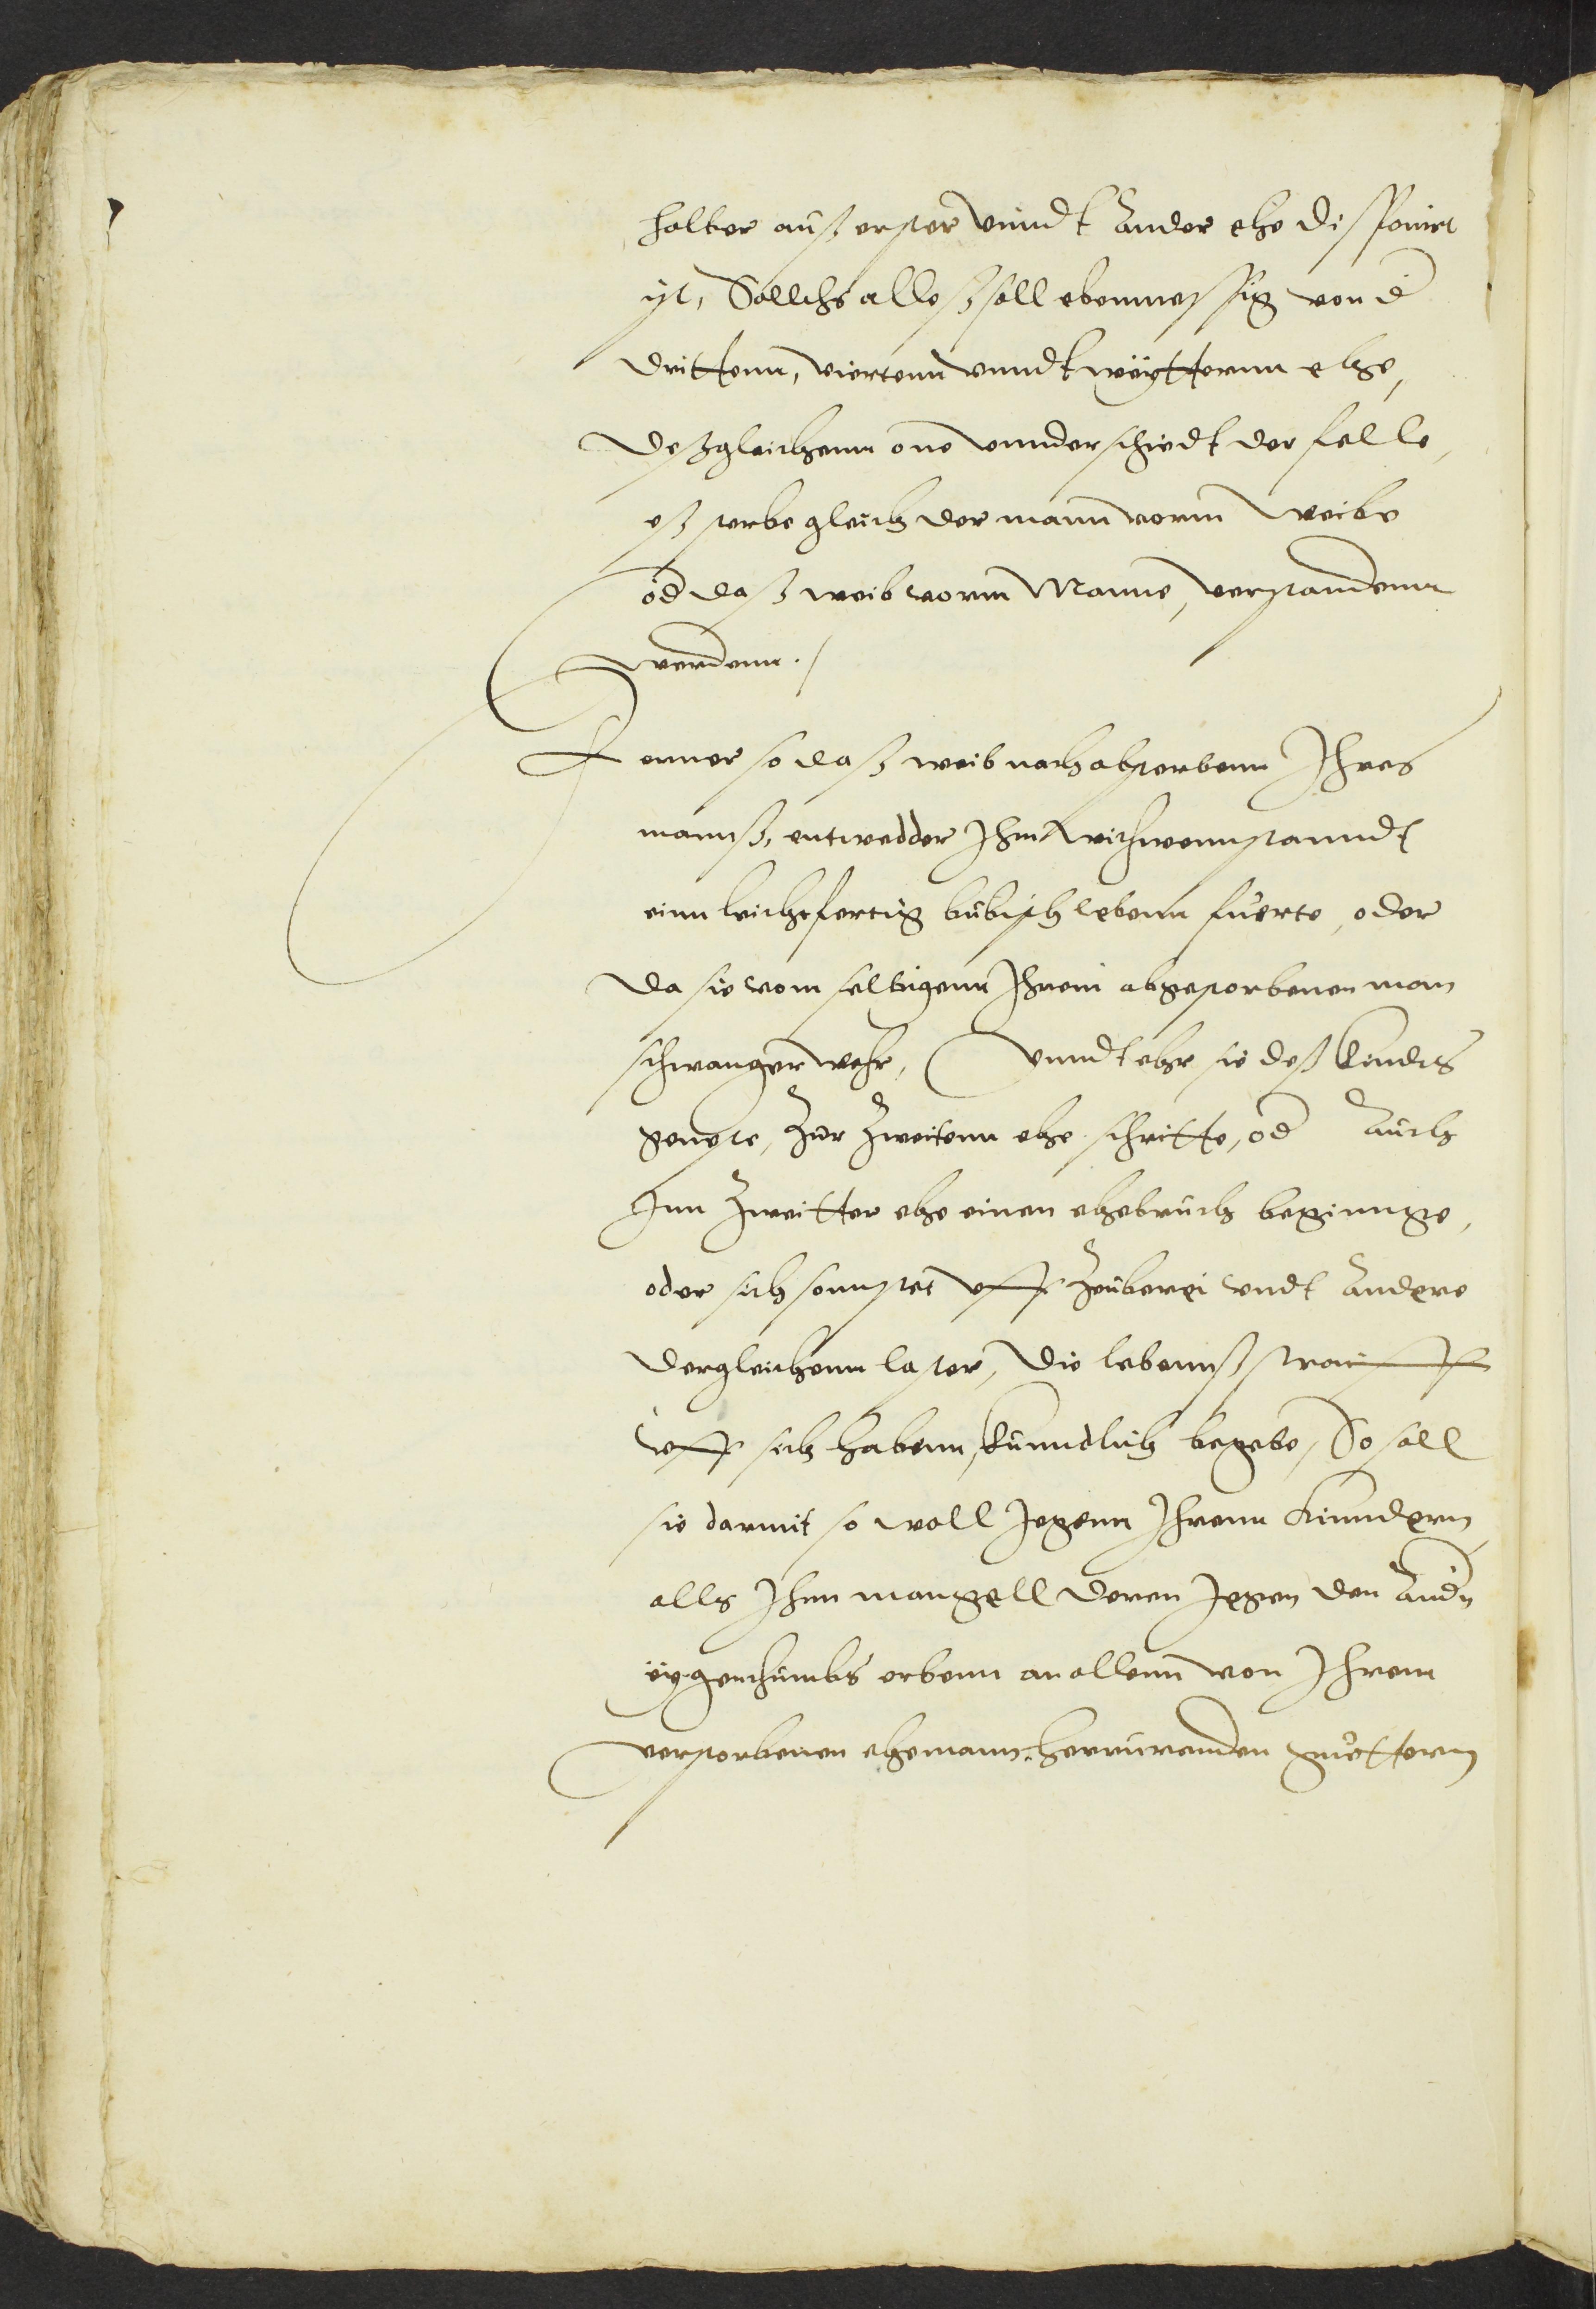 halber auß erster vnndt Ander ehe disponirt
ist, Sollichs alleß soll ebenmessig von d
drittenn, viertenn vnndt weytternn ehe,
deßgleichenn one vnnderschiedt der felle,
eß sterbe gleich der mann vorm Weibe
od daß weib vorm Manne, verstandenn
werdenn. /
Fernner so daß weib nach absterbenn Ihres
mannß, entwedder Ihm Withwennstanndt
einn leichtfertig bubisch lebenn fuerte, oder
da sie vom selbigenn Ihrem abgestorbenen man
schwanger wehr, Vnndt ehe sie deß Kindts
geneße, Zur Zweitenn ehe schritte, od Auch
Inn Zweitter ehe einen ehebruch beginnge,
oder sich sonnstet vff Zeuberei vndt Andere
dergleichenn laster, die lebennß straiff
vff sich habenn, kunndtlich begebe, So soll
sie darmit so woll Jegenn Ihrenn Kinndern
alls Ihnn mangell deren Jegen den Andn
eygenthumbs erbenn an allenn von Ihrem
verstorbenen ehemann herrurenden guettern